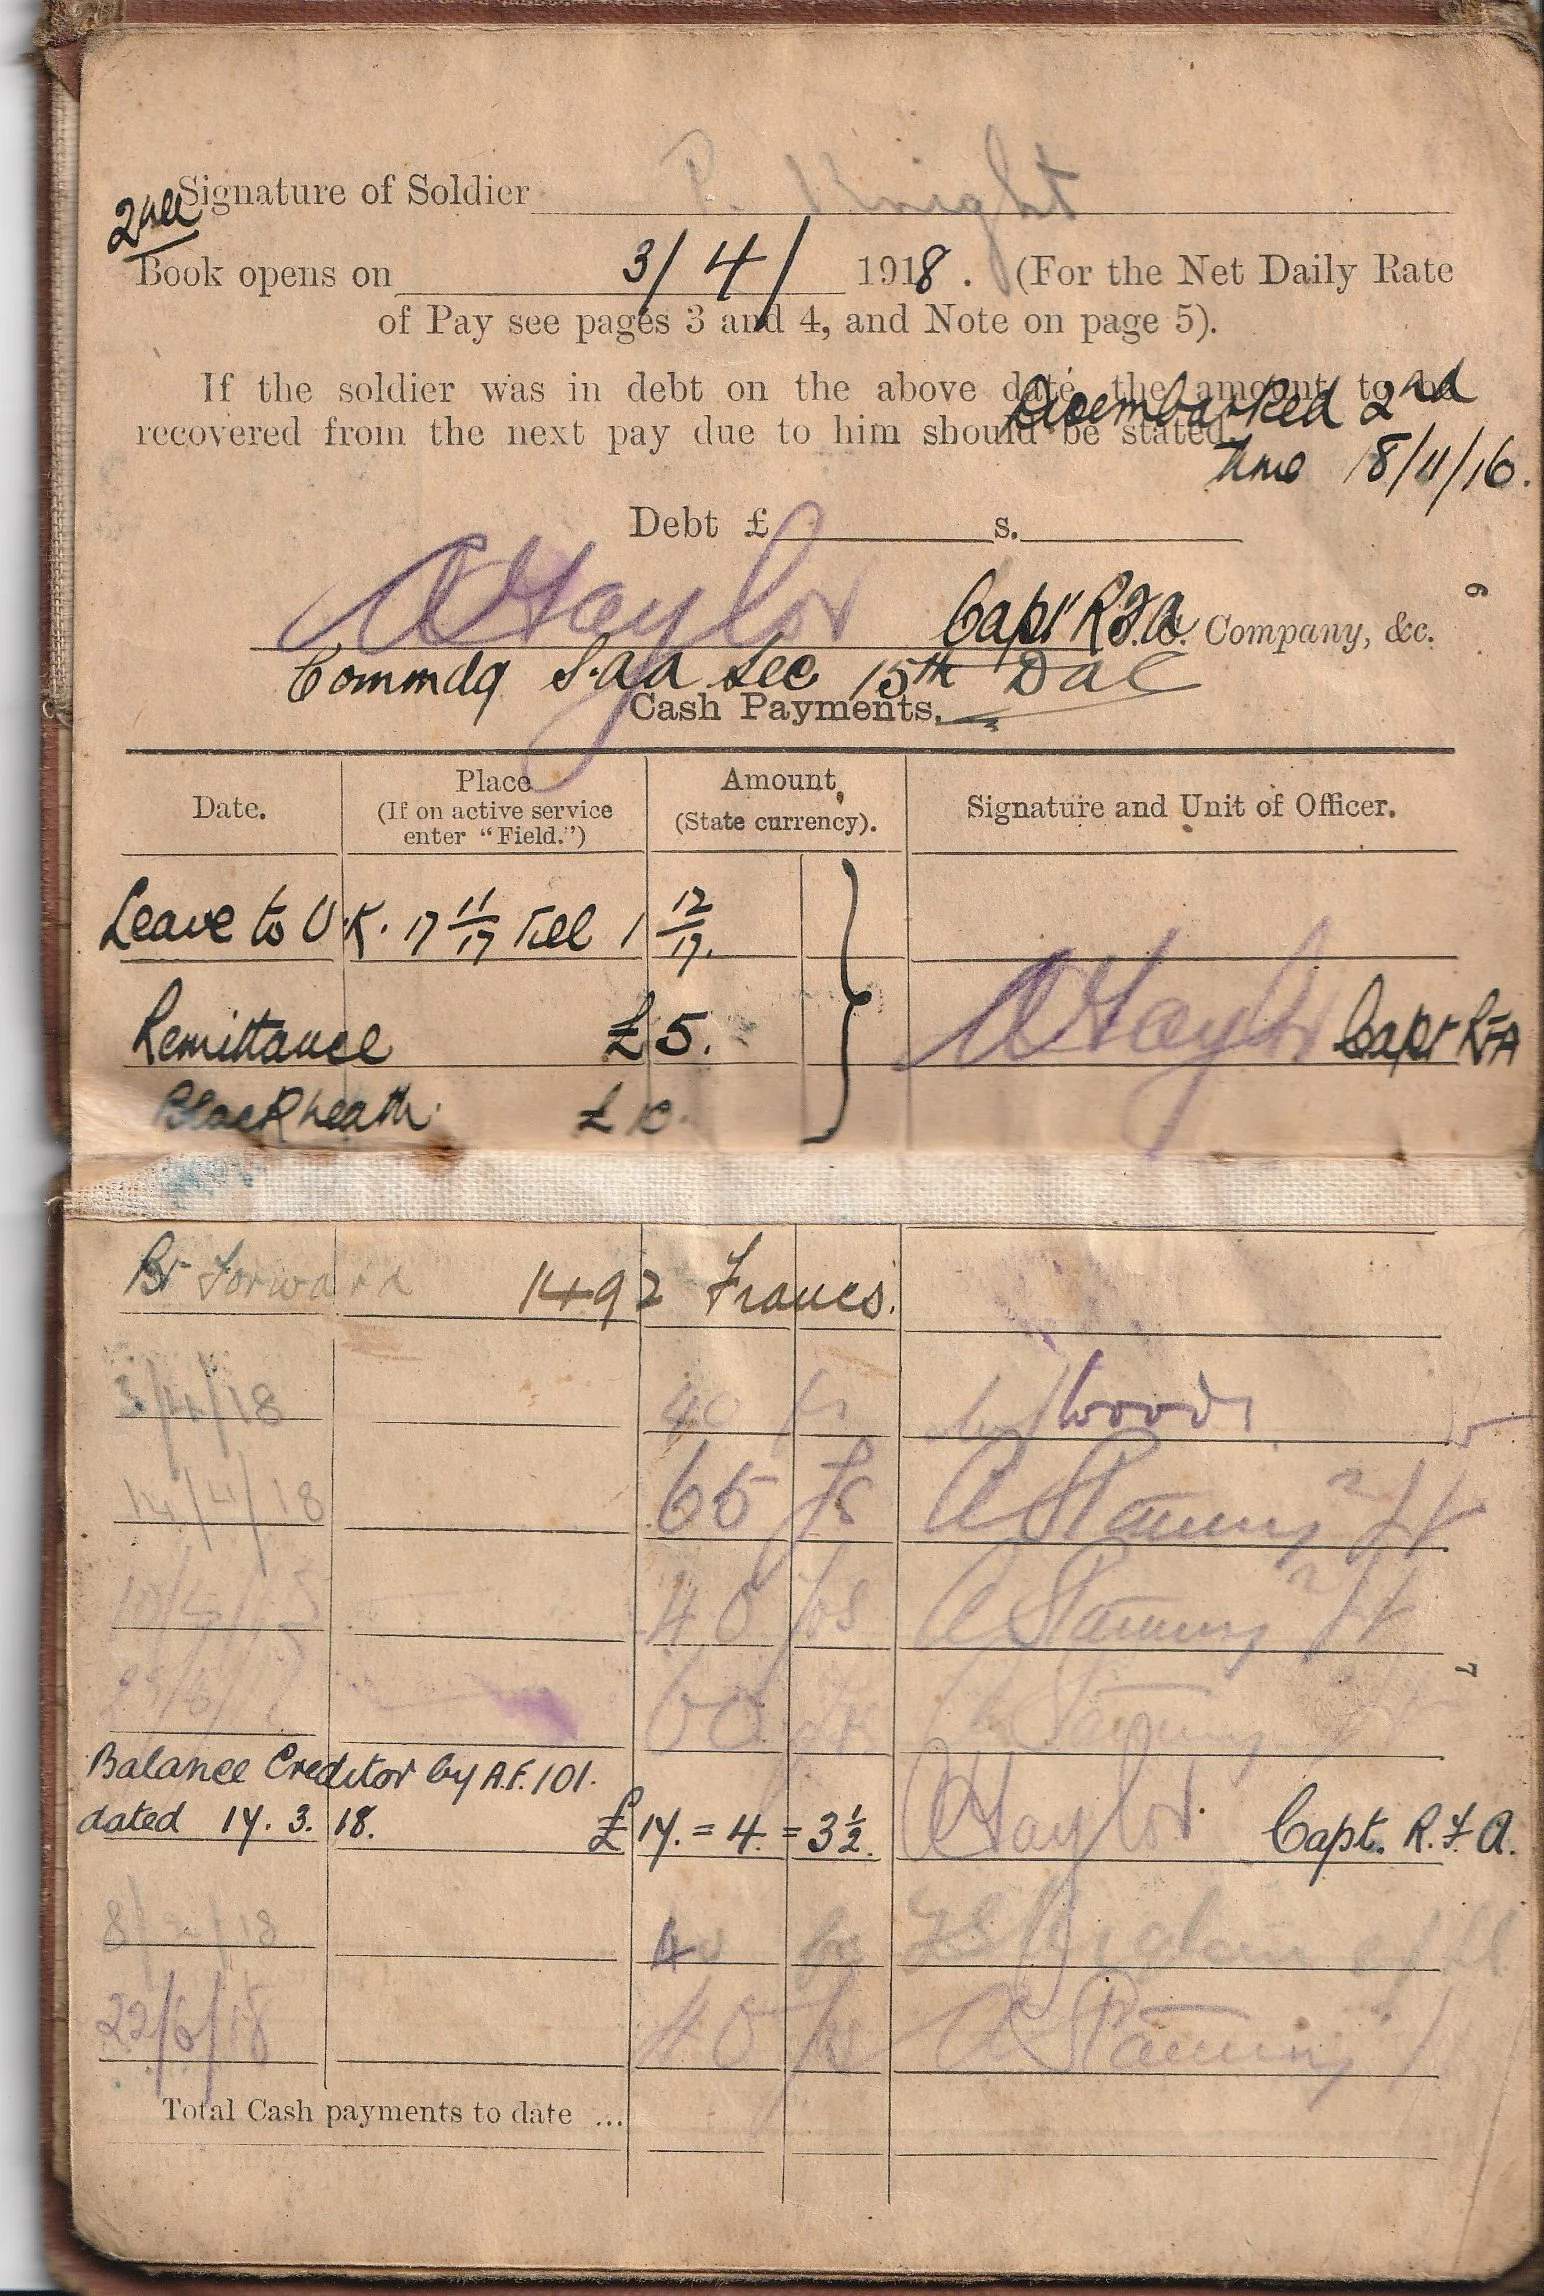 Signature of Soldier P. Knight
2nd
Book opens on 3/4/ 1918. (For the Net Daily Rate
of Pay see pages 3 and 4, and Note on page 5).
If the soldier was in debt on the above date, the amount to be
recovered from the next pay due to him should be stated.
Disembarked 2nd
time 18/11/16.
Debt £ s.
6
A Taylor Capt R.F.A. Company, &c.
Commdg S.a.a Sec 15th DAC
Cash Payments.
Date. Place (If on active service enter "Field.") Amount (State currency). Signature and Unit of Officer.
Leave to U.K. 17 11/17 till 1 12/17.
Remittance £5. A Taylor Capt RFA
Blackheath £10.
Bt Forward 1492 Francs.
3/4/18 40 fs Woods
14/4/18 65 fs
40 frs
7
60
Balance Creditor by A.F. 101.
dated 14. 3. 18. £14. = 4. = 3½. A Taylor Capt. R.F.A.
40
22/6/18 40
Total Cash payments to date ...